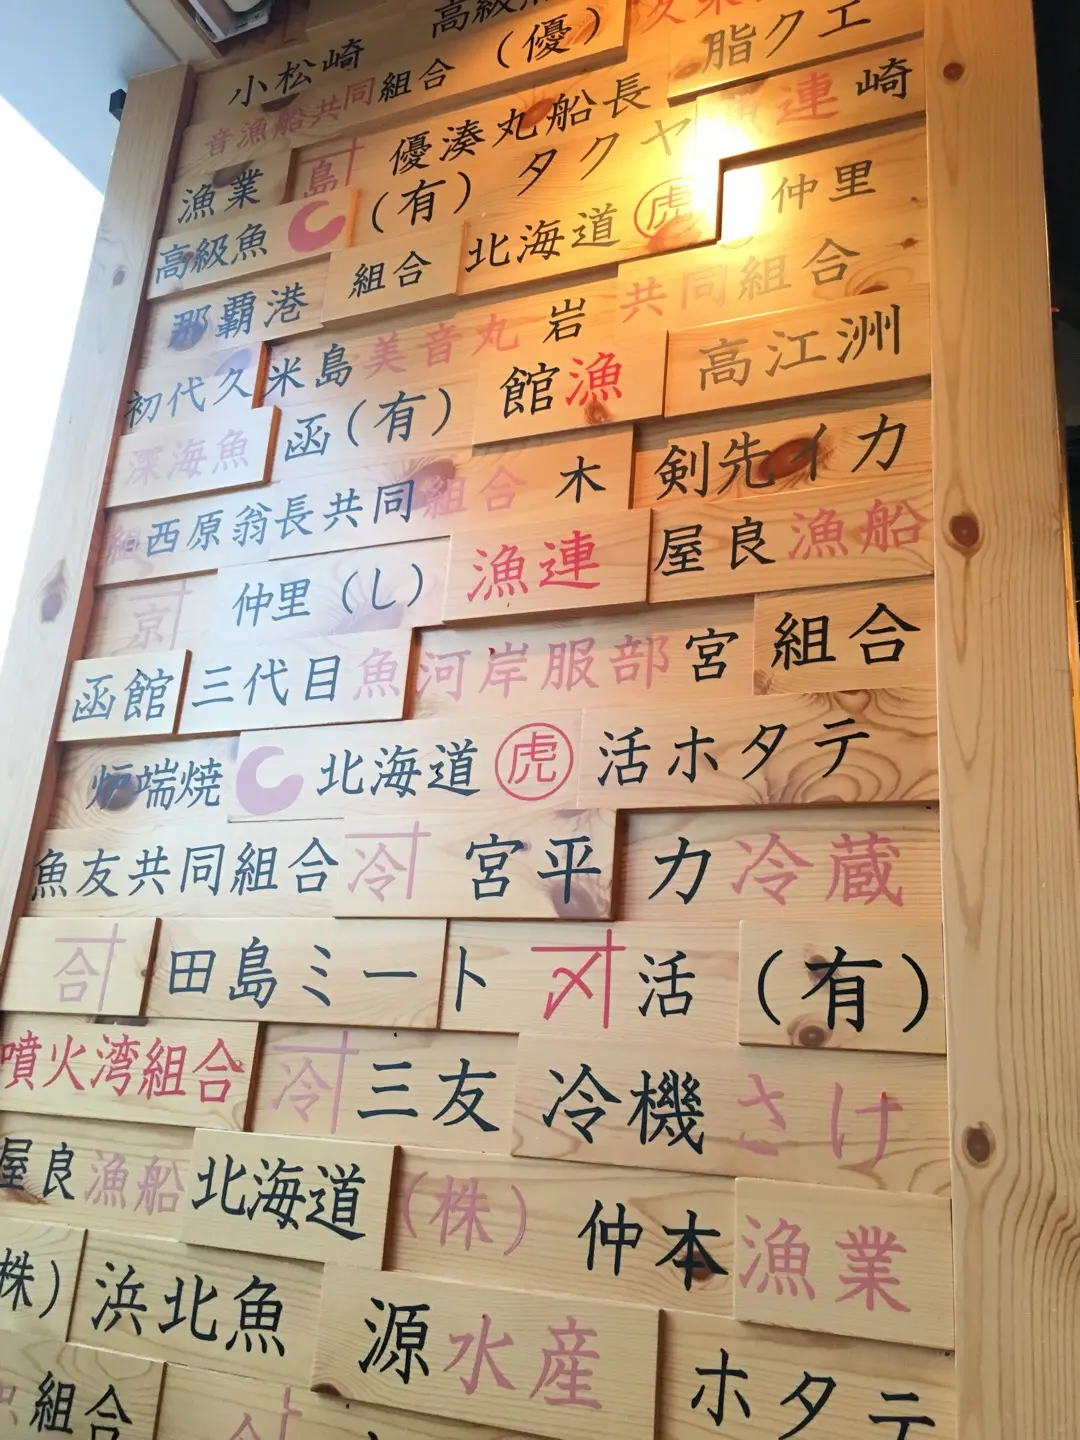 高級魚
小松崎
音漁船共同組合（優）
脂クエ
漁業
島
優湊丸船長
連崎
高級魚
（有）タクヤ
仲里
組合
北海道
虎
那覇港
共同組合
初代久米島美音丸
岩
館漁
高江洲
深海魚
函（有）
西原翁長共同組合
木
剣先イカ
京
仲里（し）
漁連
屋良漁船
函館
三代目魚河岸服部
宮
組合
炉端焼
北海道
虎
活ホタテ
魚友共同組合
冷
宮平
力
冷蔵
合
田島ミート
〆
活
（有）
噴火湾組合
冷
三友
冷機
さけ
屋良漁船
北海道
（株）
仲本
漁業
株）
浜北魚
源水産
ホタテ
組合